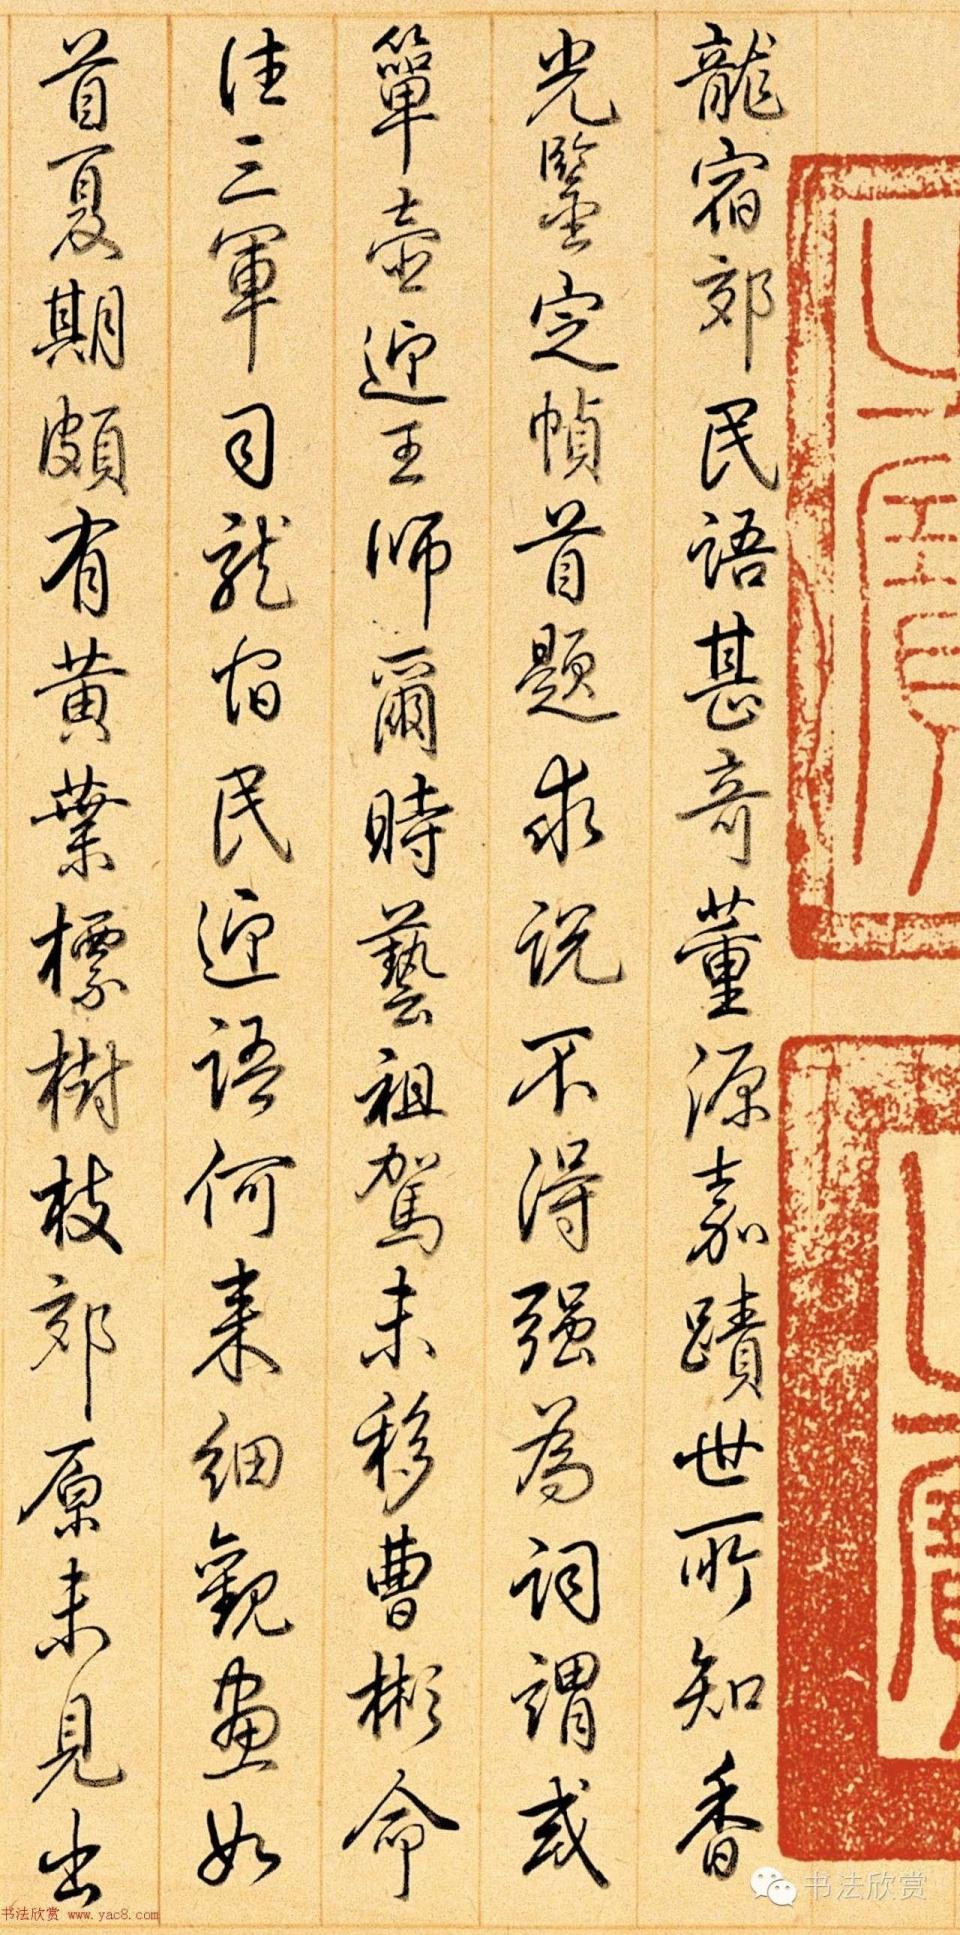 龍宿郊民語甚奇董源嘉蹟世所知香
光鑒定幀首題求説不得强為詞謂或
簞壺迎王師爾時藝祖駕未移曹彬命
往三軍司龍宿民迎語何来細觀畫如
首夏期頗有黄葉標樹枝郊原未見出
书法欣赏
书法欣赏 www.yac8.com